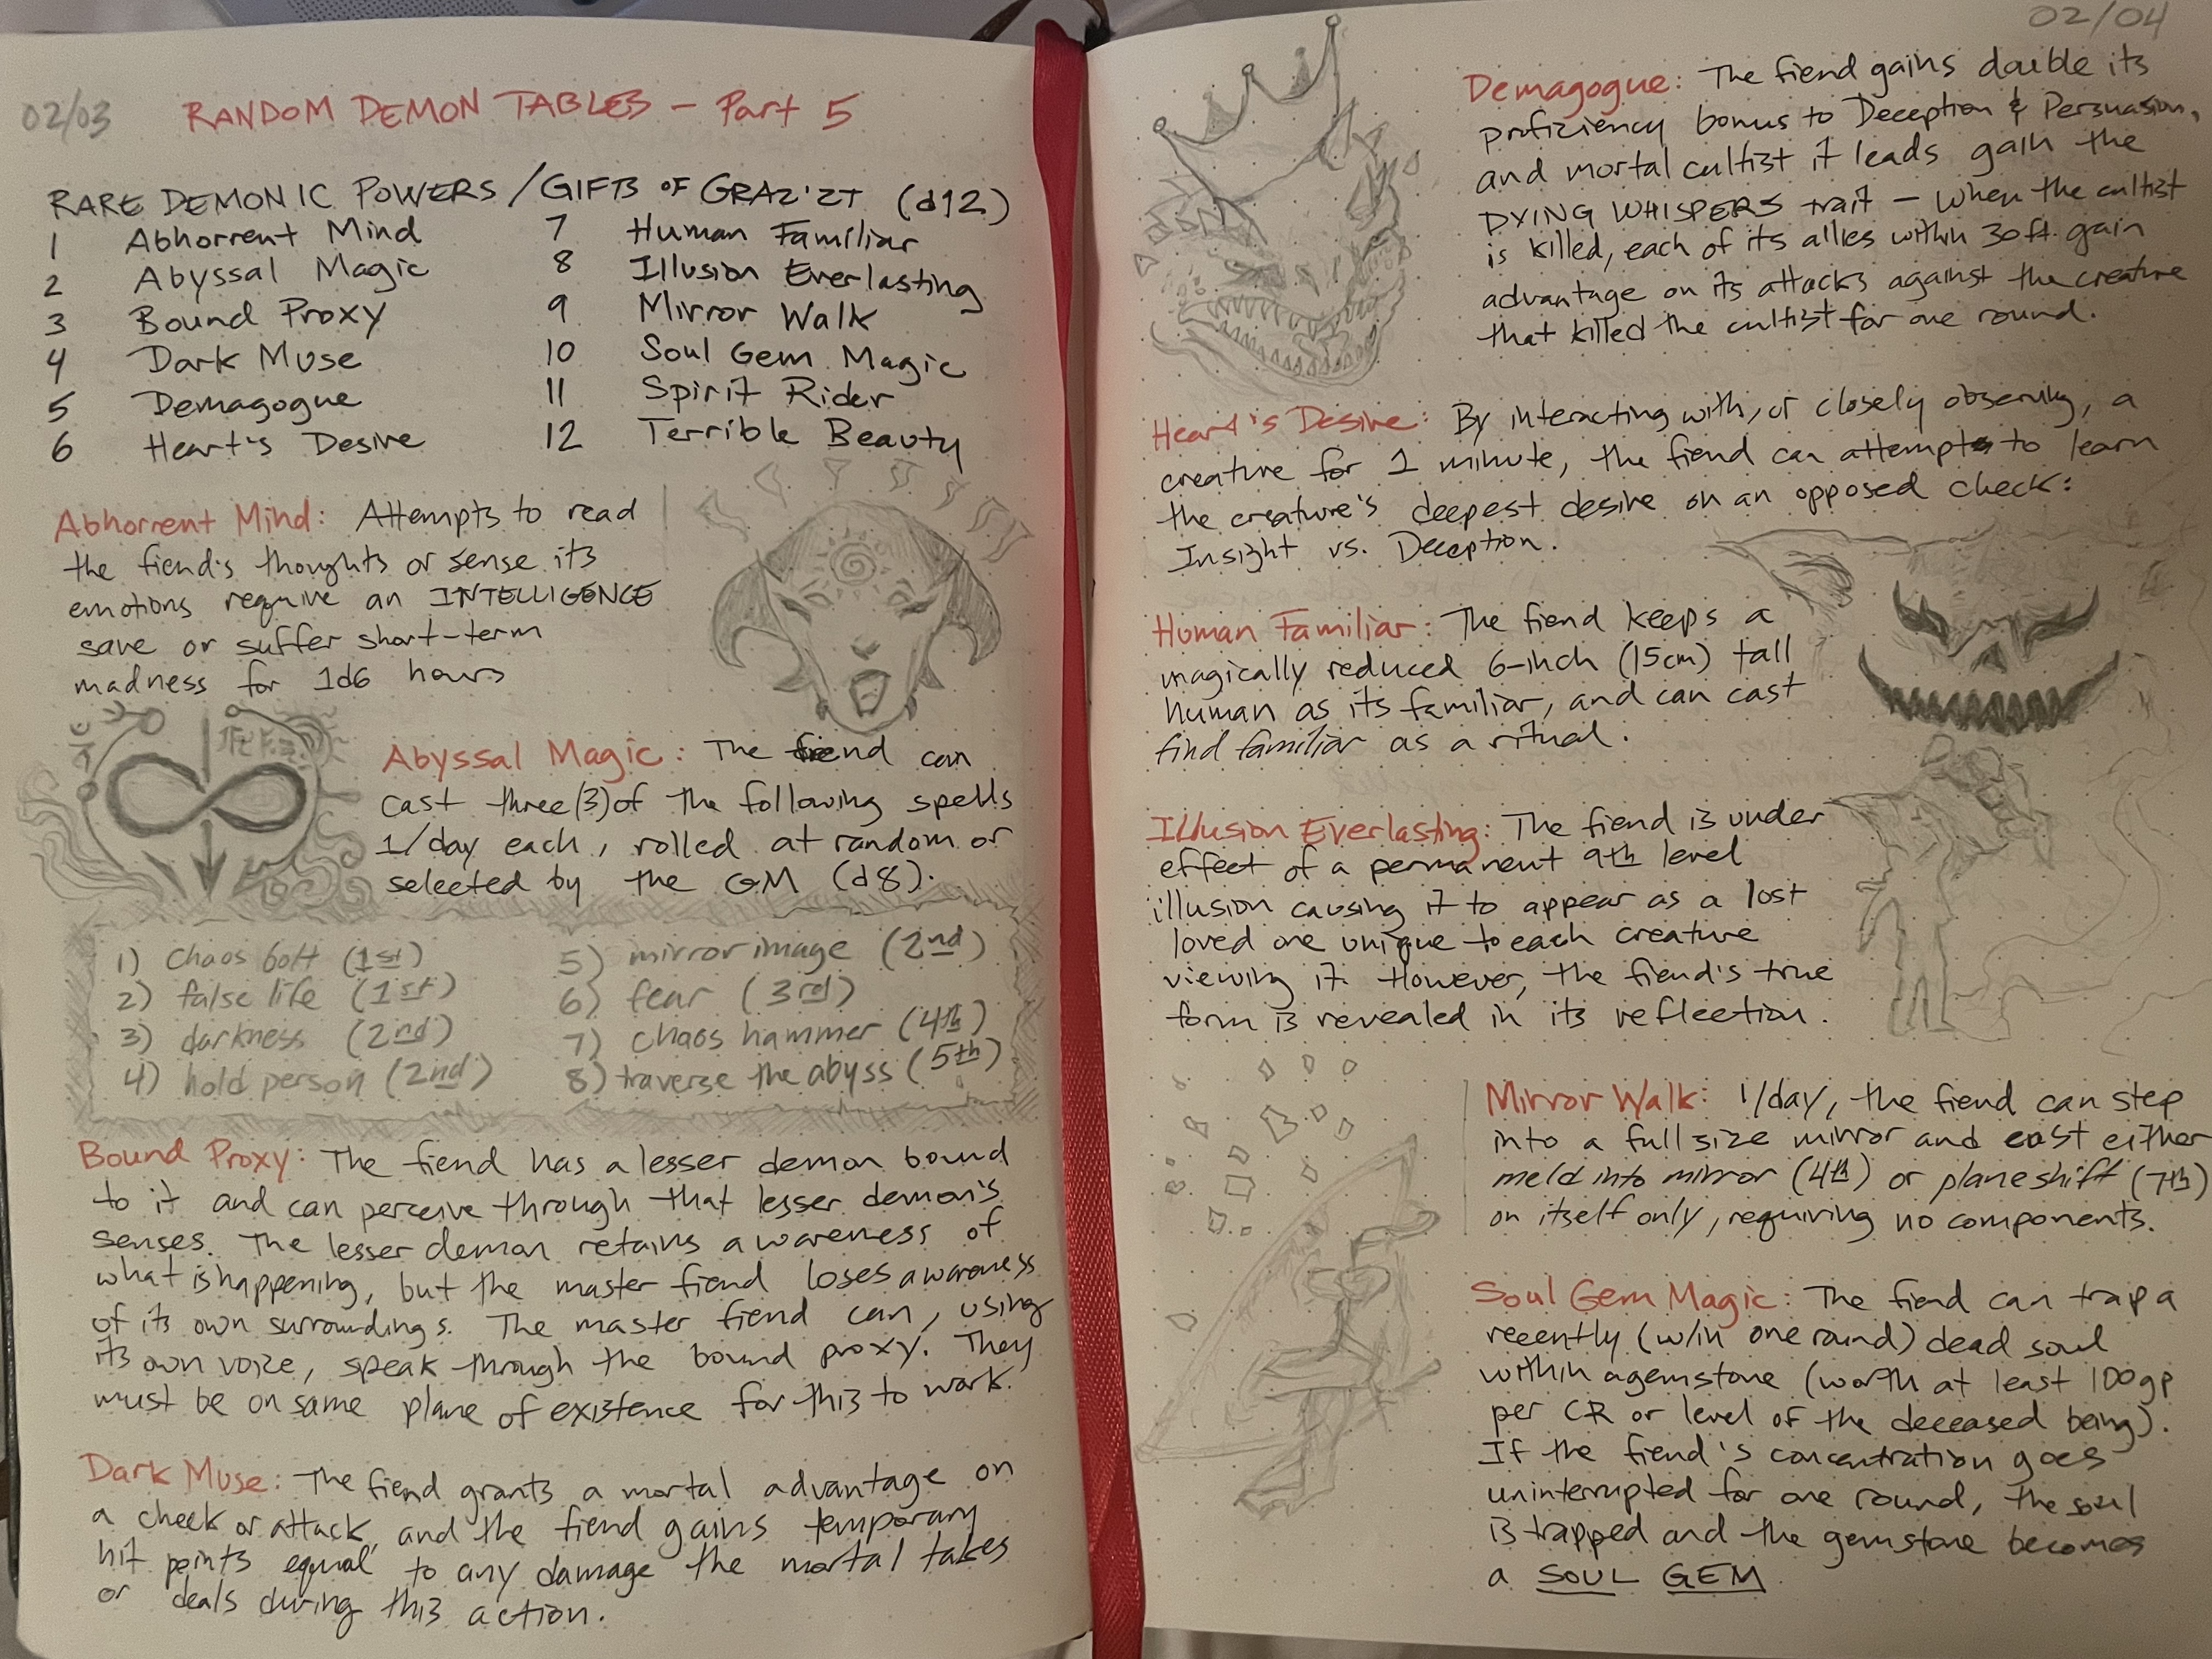 02/03
RANDOM DEMON TABLES – Part 5
RARE DEMONIC POWERS / GIFTS OF GRAZ'ZT (d12)
1 Abhorrent Mind
2 Abyssal Magic
3 Bound Proxy
4 Dark Muse
5 Demagogue
6 Heart's Desire
7 Human Familiar
8 Illusion Everlasting
9 Mirror Walk
10 Soul Gem Magic
11 Spirit Rider
12 Terrible Beauty
Abhorrent Mind: Attempts to read
the fiend's thoughts or sense its
emotions require an INTELLIGENCE
save or suffer short-term
madness for 1d6 hours
Abyssal Magic: The fiend can
cast three (3) of the following spells
1/day each, rolled at random or
selected by the GM (d8).
1) chaos bolt (1st)
2) false life (1st)
3) darkness (2nd)
4) hold person (2nd)
5) mirror image (2nd)
6) fear (3rd)
7) chaos hammer (4th)
8) traverse the abyss (5th)
Bound Proxy: The fiend has a lesser demon bound
to it and can perceive through that lesser demon's
senses. The lesser demon retains awareness of
what is happening, but the master fiend loses awareness
of its own surroundings. The master fiend can, using
its own voice, speak through the bound proxy. They
must be on same plane of existence for this to work.
Dark Muse: The fiend grants a mortal advantage on
a check or attack, and the fiend gains temporary
hit points equal to any damage the mortal takes
or deals during this action.
02/04
Demagogue: The fiend gains double its
proficiency bonus to Deception & Persuasion,
and mortal cultist it leads gain the
DYING WHISPERS trait – when the cultist
is killed, each of its allies within 30 ft. gain
advantage on its attacks against the creature
that killed the cultist for one round.
Heart's Desire: By interacting with, or closely observing, a
creature for 1 minute, the fiend can attempts to learn
the creature's deepest desire on an opposed check:
Insight vs. Deception.
Human Familiar: The fiend keeps a
magically reduced 6-inch (15cm) tall
human as its familiar, and can cast
find familiar as a ritual.
Illusion Everlasting: The fiend is under
effect of a permanent 9th level
illusion causing it to appear as a lost
loved one unique to each creature
viewing it. However, the fiend's true
form is revealed in its reflection.
Mirror Walk: 1/day, the fiend can step
into a full size mirror and cast either
meld into mirror (4th) or plane shift (7th)
on itself only, requiring no components.
Soul Gem Magic: The fiend can trap a
recently (w/in one round) dead soul
within a gemstone (worth at least 100gp
per CR or level of the deceased being).
If the fiend's concentration goes
uninterrupted for one round, the soul
is trapped and the gemstone becomes
a SOUL GEM